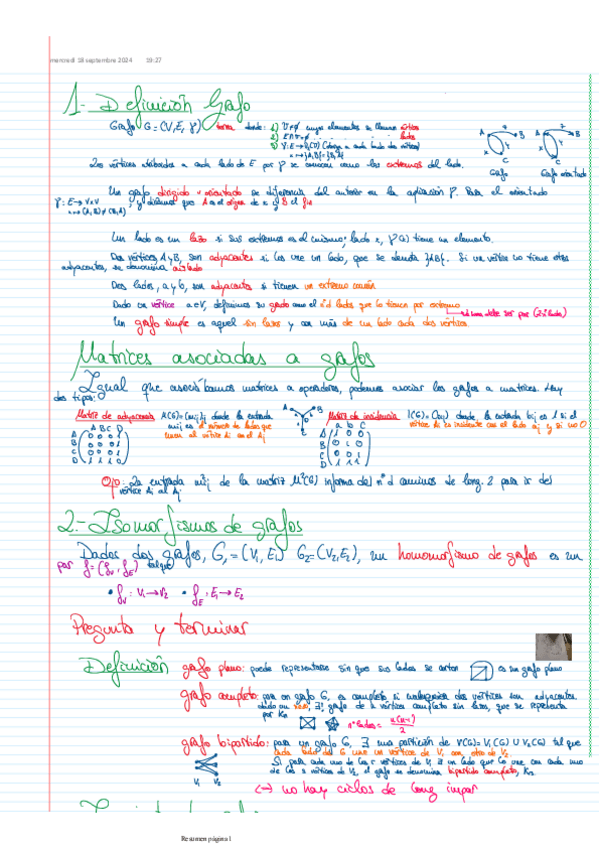 mercredi 18 septembre 2024 19:27
1- Definición Grafo
Grafo G=(V,E,γ) terna donde: 1) V≠∅ cuyos elementos se llaman vértices
2) E∩V=∅ lados
A B A B
C C
Grafo Grafo orientado
Los vértices asociados a cada lado de E por γ se conocen como los extremos del lado.
Un grafo dirigido u orientado se diferencia del anterior en la aplicación γ. Para el orientado
γ: E→V×V y diremos que A es el origen de x y B el fin
Un lado es un lazo si sus extremos es el mismo; lado x, γ(x) tiene un elemento.
Dos vértices A y B, son adyacentes si les une un lado, que se denota {A,B}. Si un vértice no tiene otros
adyacentes, se denomina aislado
Dos lados, a y b, son adyacentes si tienen un extremo común
Dado un vértice a∈V, definimos su grado como el nº d lados que lo tienen por extremo
Un grafo simple es aquel sin lazos y con más de un lado cada dos vértices.
Matrices asociadas a grafos
Igual que asociábamos matrices a operadores, podemos asociar los grafos a matrices. Hay
dos tipos:
Matriz de adyacencia donde la entrada
Matriz de incidencia donde la entrada bij es 1 si el
mij es el número de lados que
vértice Ai es incidente con el lado aj y si no 0
unen al vértice Ai con el Aj
A B C D
A 0 0 0 1
B 0 0 0 1
C 0 0 0 1
D 1 1 1 0
a b c
A 1 0 0
B 0 1 0
C 0 0 1
D 1 1 1
Ojo: La entrada m²ij de la matriz M²(G) informa del nº d caminos de long. 2 para ir del
vértice Ai al Aj
2.- Isomorfismos de grafos
Dados dos grafos, G₁=(V₁,E₁) G₂=(V₂,E₂), un homomorfismo de grafos es un
par f=(fv,fE) tal que
• fv: V₁→V₂ • fE: E₁→E₂
Pregunta y terminar
Definición grafo plano: puede representarse sin que sus lados se corten es un grafo plano
grafo completo: para un grafo G, es completo si cualesquiera dos vértices son adyacentes.
dado un n∈N, ∃! grafo de n vértices completo sin lazos, que se representa
por Kn nº lados = n(n-1)/2
grafo bipartido: para un grafo G, ∃ una partición de V(G)=V₁(G)∪V₂(G) tal que
cada lado del G une un vértice de V₁ con otro de V₂.
Si para cada uno de los r vértices de V₁ hay un lado que lo une con cada uno
de los s vértices de V₂, el grafo se denomina bipartido completo,
V₁ V₂
↔ no hay ciclos de long impar
Resumen página 1